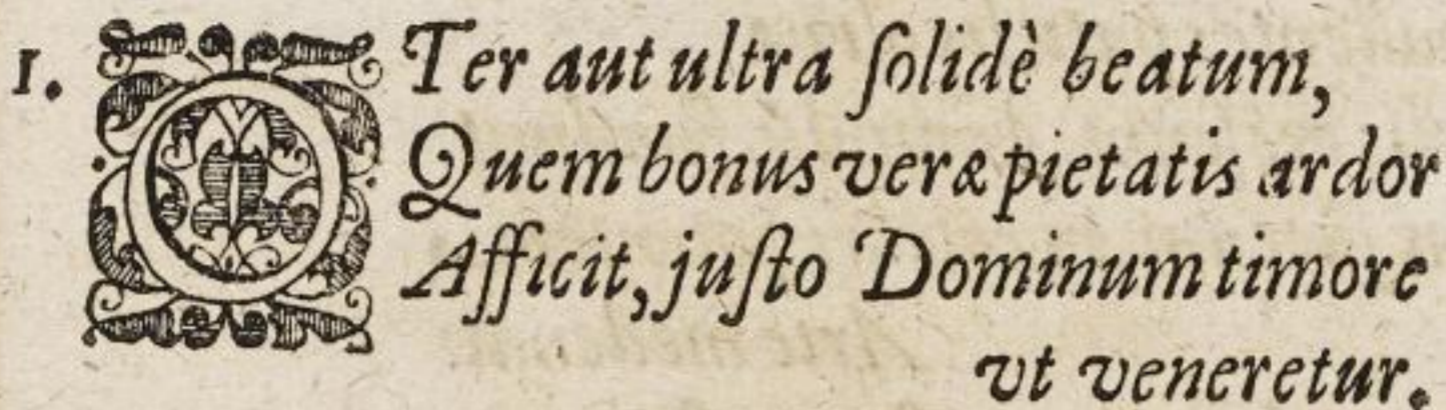 1. O Ter aut ultra ſolidè beatum,
Quem bonus veræ pietatis ardor
Afficit, juſto Dominum timore
vt veneretur.